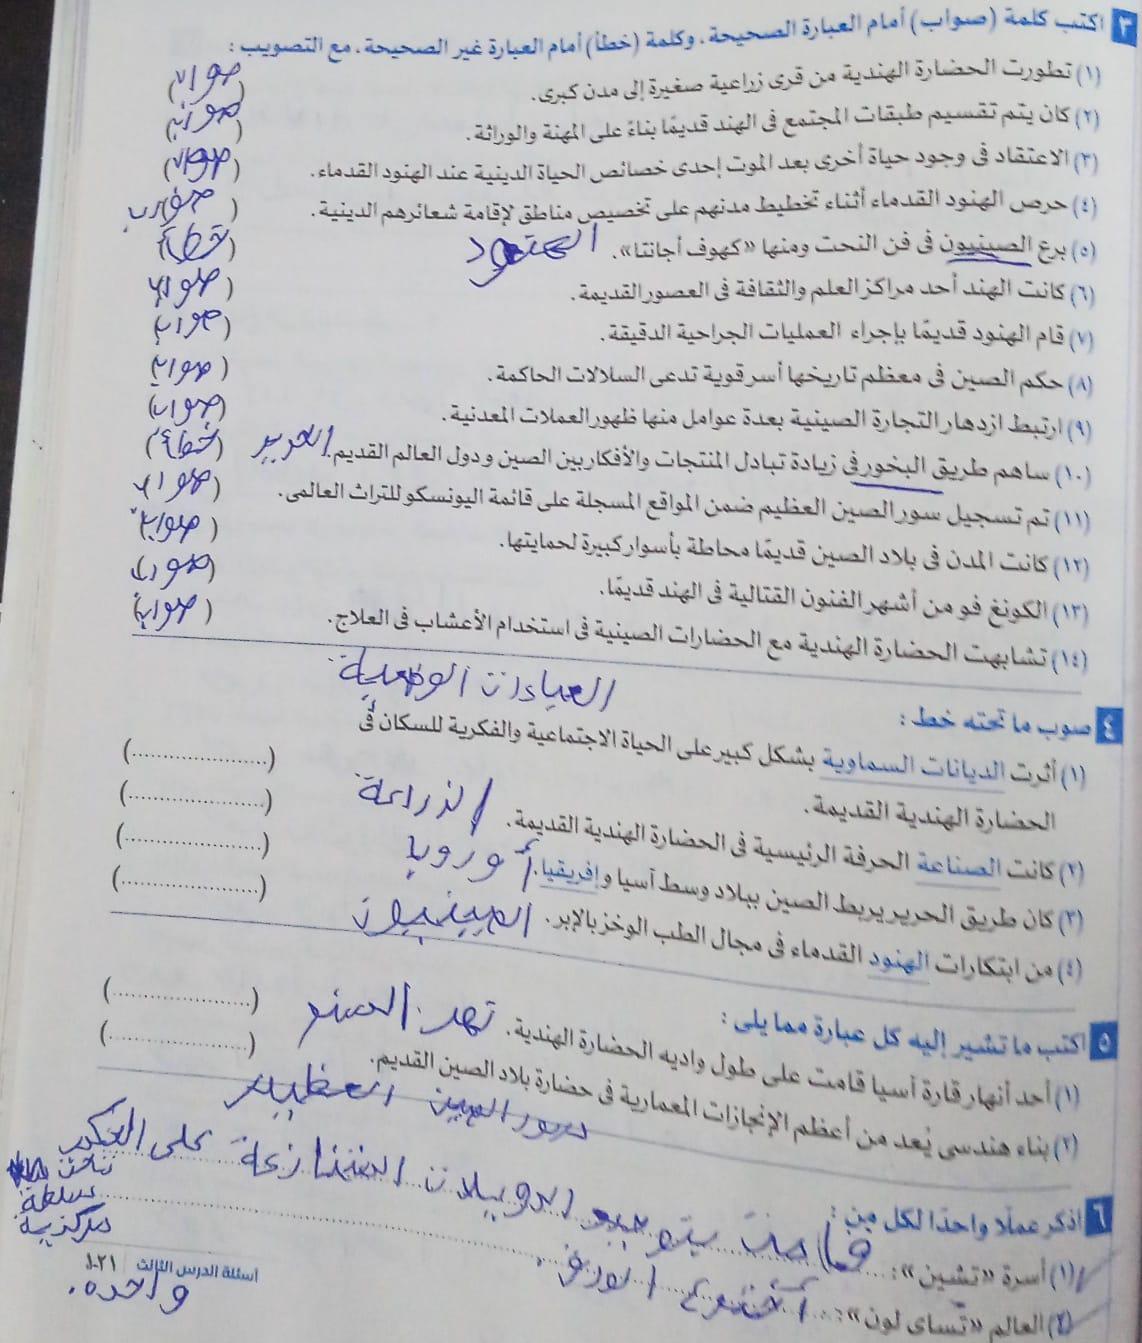 ٣ اكتب كلمة (صواب) أمام العبارة الصحيحة، وكلمة (خطأ) أمام العبارة غير الصحيحة، مع التصويب :
(١) تطورت الحضارة الهندية من قرى زراعية صغيرة إلى مدن كبرى. (صواب)
(٢) كان يتم تقسيم طبقات المجتمع فى الهند قديمًا بناءً على المهنة والوراثة. (صواب)
(٣) الاعتقاد فى وجود حياة أخرى بعد الموت إحدى خصائص الحياة الدينية عند الهنود القدماء. (صواب)
(٤) حرص الهنود القدماء أثناء تخطيط مدنهم على تخصيص مناطق لإقامة شعائرهم الدينية. (صواب)
(٥) برع الصينيون فى فن النحت ومنها «كهوف أجانتا». الهنود (خطأ)
(٦) كانت الهند أحد مراكز العلم والثقافة فى العصور القديمة. (صواب)
(٧) قام الهنود قديمًا بإجراء العمليات الجراحية الدقيقة. (صواب)
(٨) حكم الصين فى معظم تاريخها أسر قوية تدعى السلالات الحاكمة. (صواب)
(٩) ارتبط ازدهار التجارة الصينية بعدة عوامل منها ظهور العملات المعدنية. (صواب)
(١٠) ساهم طريق البخور فى زيادة تبادل المنتجات والأفكار بين الصين ودول العالم القديم. الحرير (خطأ)
(١١) تم تسجيل سور الصين العظيم ضمن المواقع المسجلة على قائمة اليونسكو للتراث العالمى. (صواب)
(١٢) كانت المدن فى بلاد الصين قديمًا محاطة بأسوار كبيرة لحمايتها. (صواب)
(١٣) الكونغ فو من أشهر الفنون القتالية فى الهند قديمًا. (صواب)
(١٤) تشابهت الحضارة الهندية مع الحضارات الصينية فى استخدام الأعشاب فى العلاج. (صواب)
٤ صوب ما تحته خط :
العبادات الوضعية
(١) أثرت الديانات السماوية بشكل كبير على الحياة الاجتماعية والفكرية للسكان فى
الحضارة الهندية القديمة. (....................)
(٢) كانت الصناعة الحرفة الرئيسية فى الحضارة الهندية القديمة. الزراعة (....................)
(٣) كان طريق الحرير يربط الصين ببلاد وسط آسيا وإفريقيا. أوروبا (....................)
(٤) من ابتكارات الهنود القدماء فى مجال الطب الوخز بالإبر. الصينيون (....................)
٥ اكتب ما تشير إليه كل عبارة مما يلى :
(١) أحد أنهار قارة آسيا قامت على طول واديه الحضارة الهندية. نهر السند (....................)
(٢) بناء هندسى يُعد من أعظم الإنجازات المعمارية فى حضارة بلاد الصين القديم. (....................)
سور الصين العظيم
٦ اذكر عملًا واحدًا لكل من :
(١) أسرة «تشين»: قامت بتوحيد الدويلات المتنازعة على الحكم
تحت
سلطة
مركزية
واحدة.
(٢) العالم «تساى لون»: اخترع الورق.
أسئلة الدرس الثالث | ١٠٢١